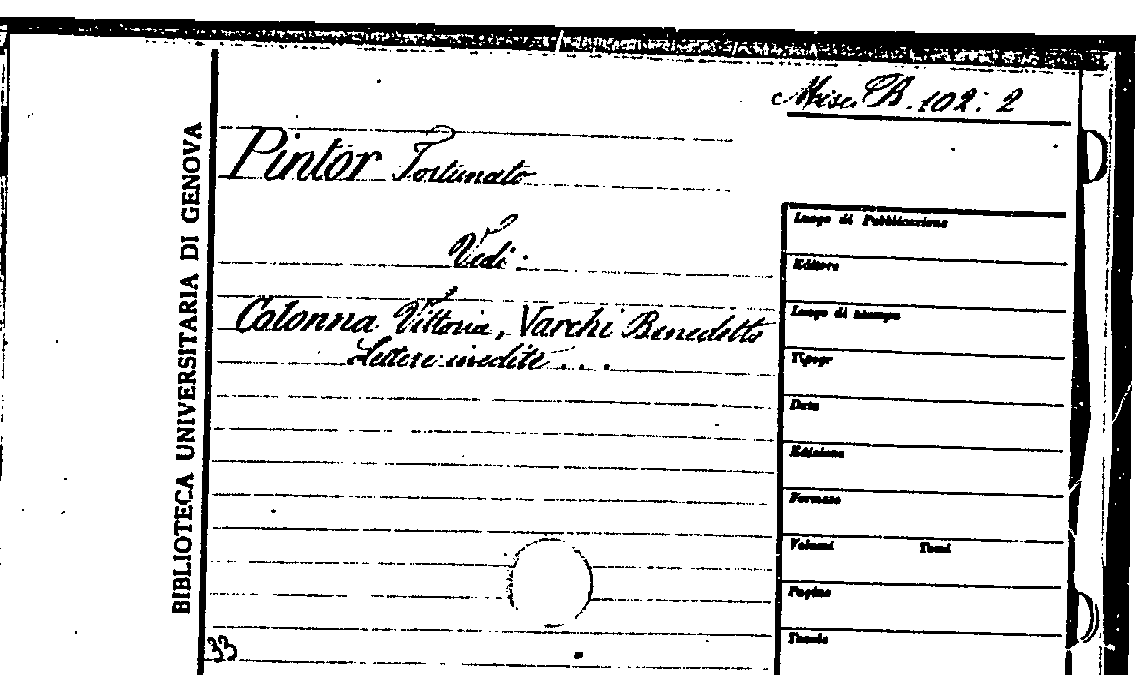 Misc. B. 102. 2
BIBLIOTECA UNIVERSITARIA DI GENOVA
Pintor Fortunato
Vedi:
Colonna Vittoria, Varchi Benedetto
Lettere inedite . . .
Luogo di Pubblicazione
Editore
Luogo di stampa
Tipogr
Data
Edizione
Formato
Volumi Tomi
Pagine
33